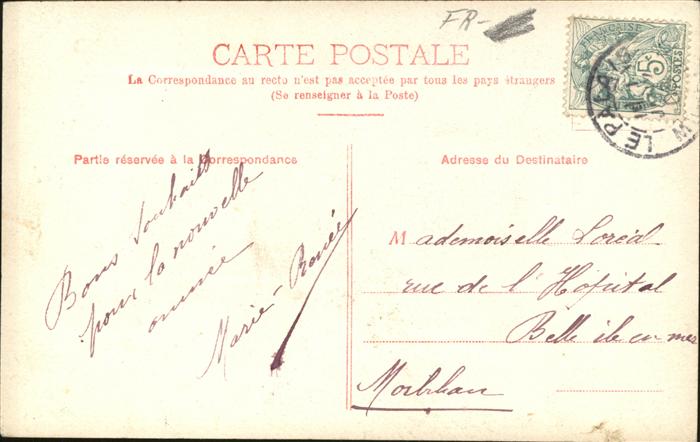 FR-
CARTE POSTALE
La Correspondance au recto n'est pas acceptée par tous les pays étrangers
(Se renseigner à la Poste)
Partie réservée à la Correspondance
Bons souhaits
pour la nouvelle
année
Marie-Renée
Adresse du Destinataire
Mademoiselle Loréal
rue de l'Hôpital
Belle ile en mer
Morbihan
FRANÇAISE
5
POSTES
LE PALAIS